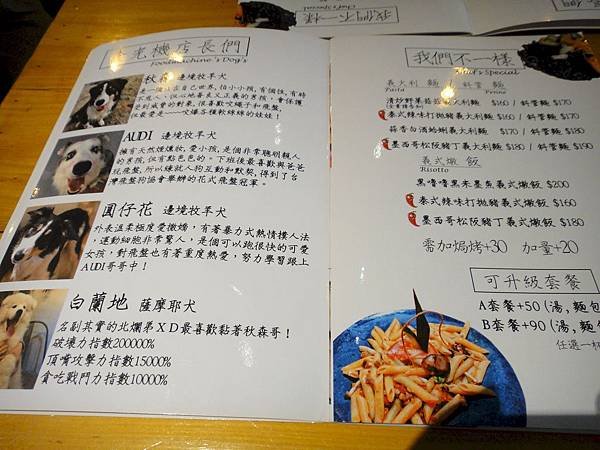 食光機店長們
Foodmachine's Dog's
秋森 邊境牧羊犬
AUDI 邊境牧羊犬
擁有天然煙燻妝,愛小孩,是個非常聰明親人
的男孩,但有點色色的。下班後最喜歡與爸爸
玩飛盤,所以練就人狗互動和默契,得到了台
灣飛盤狗協會舉辦的花式飛盤冠軍。
圓仔花 邊境牧羊犬
外表溫柔極度愛撒嬌,有著暴力式熱情撲人法
,運動細胞非常驚人,是個可以跑很快的可愛
女孩,對飛盤也有著重度熱愛,努力學習跟上
AUDI哥哥中!
白蘭地 薩摩耶犬
名副其實的北爛弟XD最喜歡黏著秋森哥!
破壞力指數200000%
頂嘴攻擊力指數15000%
貪吃戰鬥力指數10000%
我們不一樣
Chef's Special
義大利 麵 / 斜管 麵
Pasta Penne
清炒野菜菇菇義大利麵 $160 / 斜管麵 $170
泰式辣味打拋豬義大利麵 $160 / 斜管麵 $170
蒜香白酒蛤蜊義大利麵 $170 / 斜管麵 $180
墨西哥松阪豬丁義大利麵 $180 / 斜管麵 $190
義式燉 飯
Risotto
黑嚕嚕黑米墨魚義式燉飯 $200
泰式辣味打拋豬義式燉飯 $160
墨西哥松阪豬丁義式燉飯 $180
需加焗烤+30 加量+20
可升級套餐
A套餐+50(湯,麵包
B套餐+90(湯,麵包
任選一杯